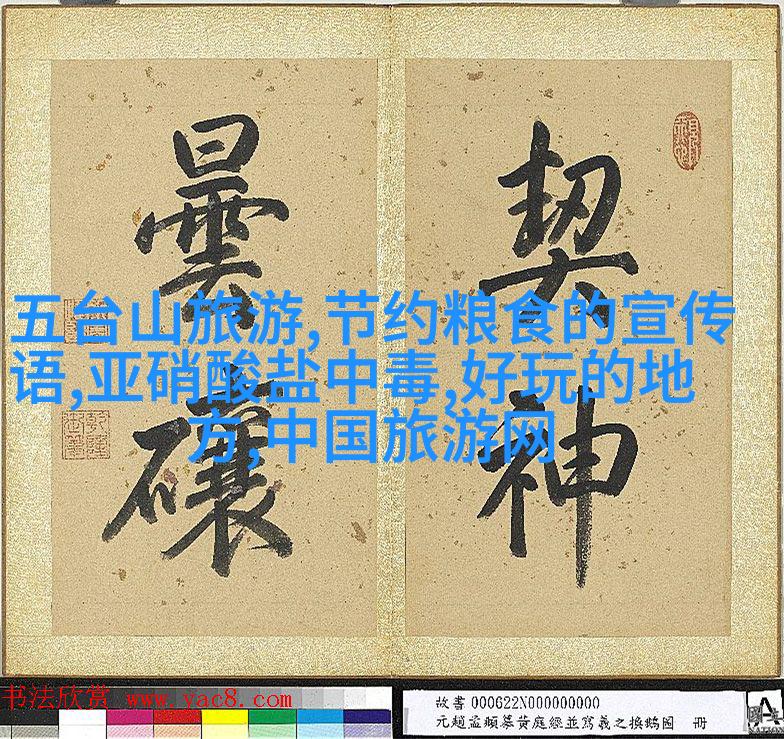 契神
曇
五台山旅游,节约粮食的宣传
语,亚硝酸盐中毒,好玩的地
方,中国旅游网
书法欣赏 www.yac8.com
故書000622N000000000
元趙孟頫摹黃庭經並寫羲之換鵝圖 冊